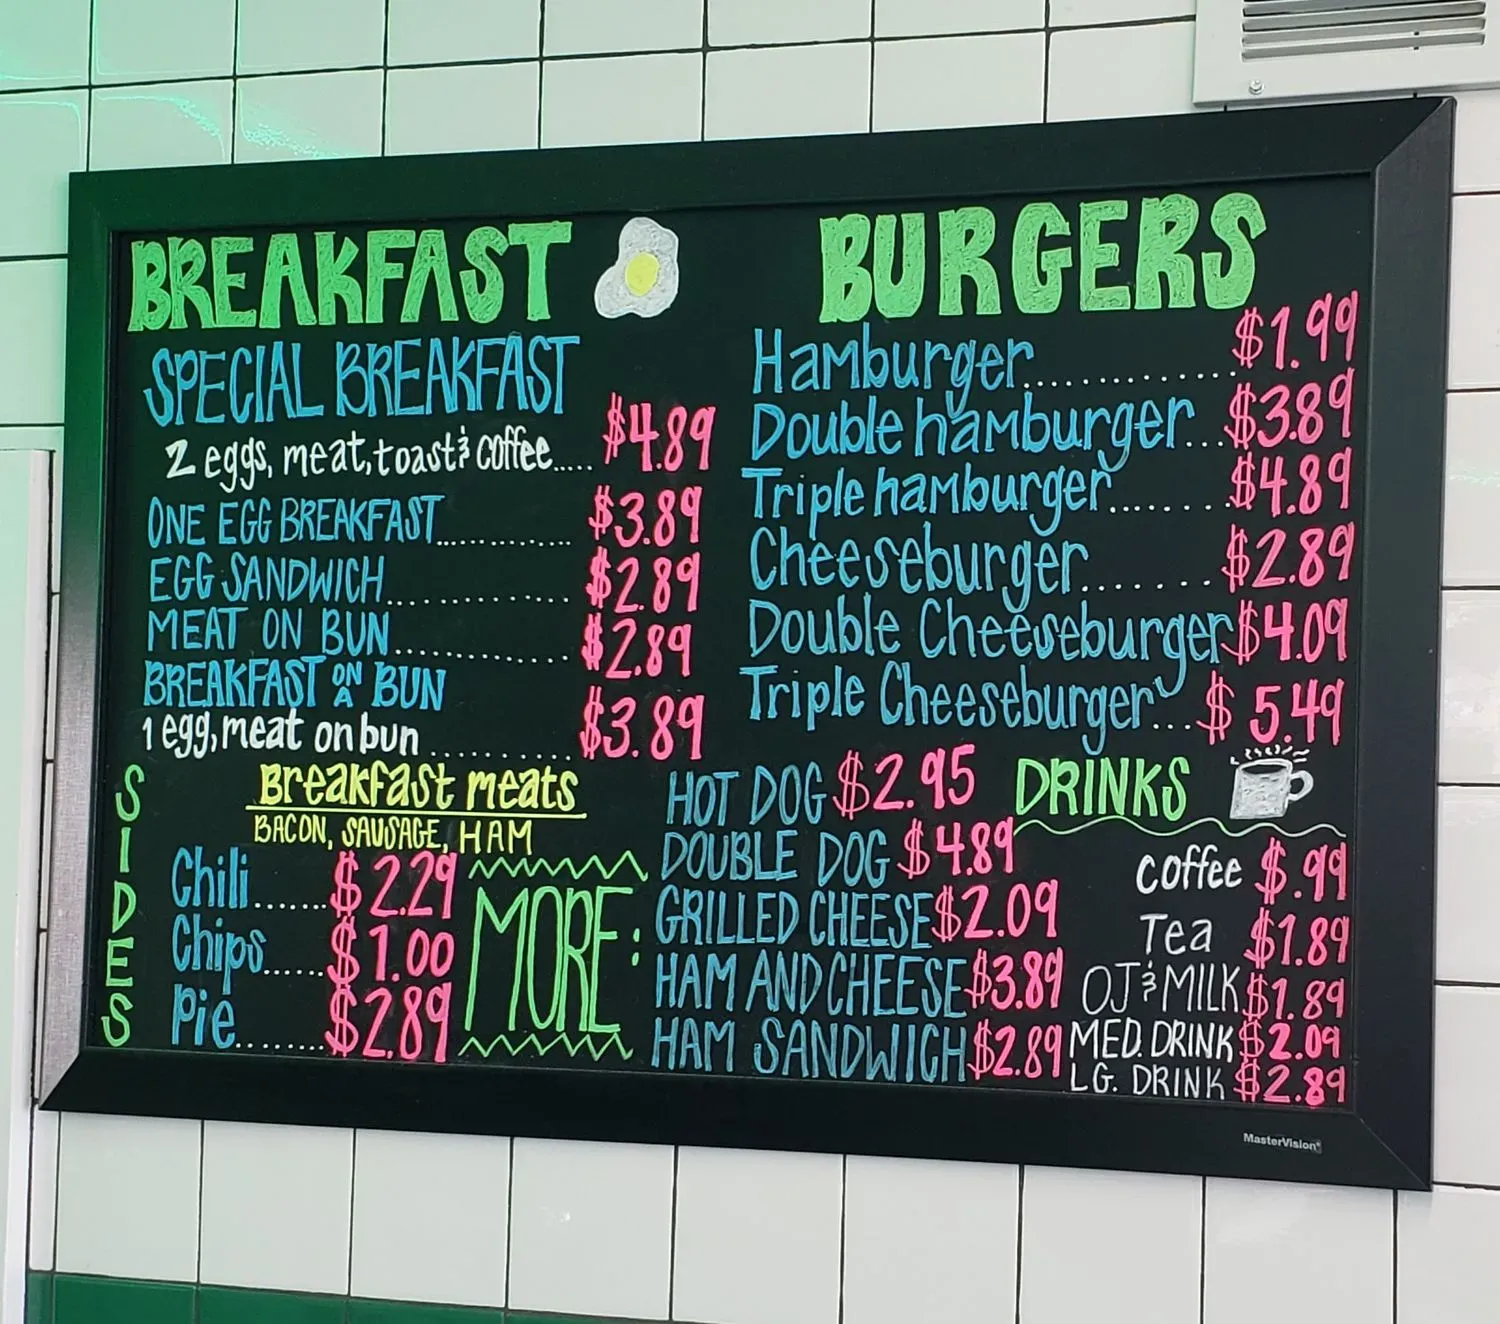 BREAKFAST
SPECIAL BREAKFAST
2 eggs, meat, toast & coffee..... $4.89
ONE EGG BREAKFAST............. $3.89
EGG SANDWICH............... $2.89
MEAT ON BUN............... $2.89
BREAKFAST ON A BUN
1 egg, meat on bun.......... $3.89
Breakfast meats
BACON, SAUSAGE, HAM
SIDES
Chili....... $2.29
Chips...... $1.00
Pie........ $2.89
BURGERS
Hamburger............... $1.99
Double hamburger... $3.89
Triple hamburger....... $4.89
Cheeseburger....... $2.89
Double Cheeseburger $4.09
Triple Cheeseburger... $5.49
MORE:
HOT DOG $2.95
DOUBLE DOG $4.89
GRILLED CHEESE $2.09
HAM AND CHEESE $3.89
HAM SANDWICH $2.89
DRINKS
coffee $.99
Tea $1.89
OJ & MILK $1.89
MED. DRINK $2.09
LG. DRINK $2.89
MasterVision®